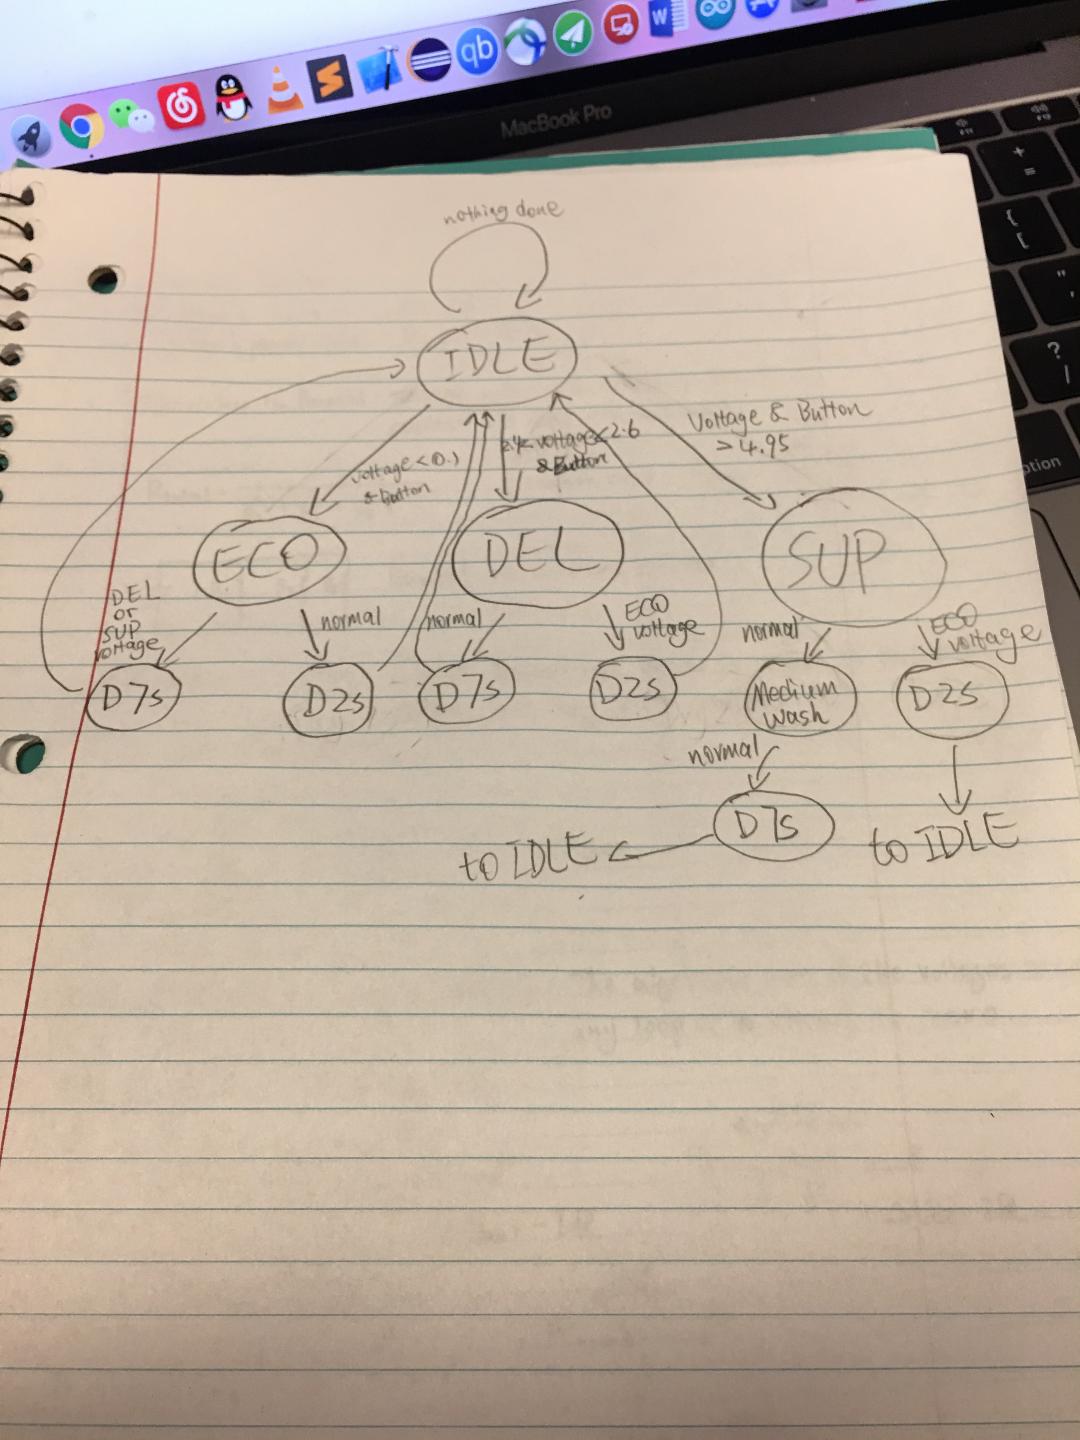 qb
W
MacBook Pro
+
=
{
[
"
,
?
/
ption
nothing done
IDLE
Voltage & Button
> 4.95
2.4< voltage < 2.6
& Button
voltage < 0.1
& Button
ECO
DEL
SUP
DEL
or
SUP
voltage
normal
normal
ECO
voltage
normal
ECO
voltage
D7s
D2s
D7s
D2s
Medium
wash
D2s
normal
D7s
to IDLE
to IDLE